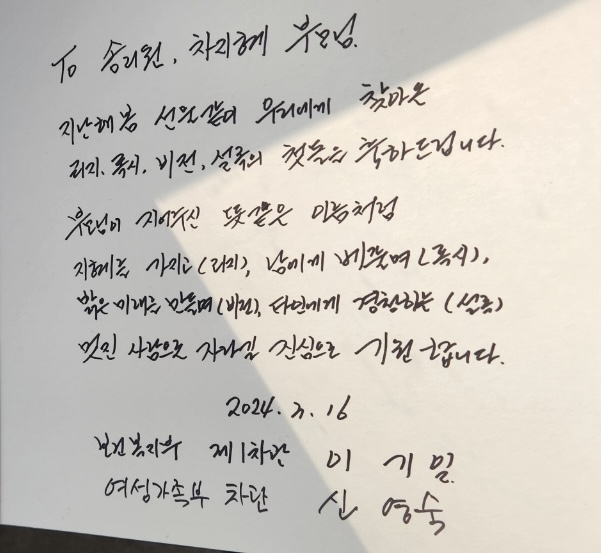 To 송리원, 차지혜 부모님.
지난해 봄 선물같이 우리에게 찾아온
리지, 록시, 비전, 설록의 첫돌을 축하드립니다.
부모님이 지어주신 뜻깊은 이름처럼
지혜를 가지고 (리지), 남에게 베풀며 (록시),
밝은 미래를 만들며 (비전), 타인에게 경청하는 (설록)
멋진 사람으로 자라길 진심으로 기원합니다.
2024. 3. 16
보건복지부 제1차관 이 기 일
여성가족부 차관 신 영 숙